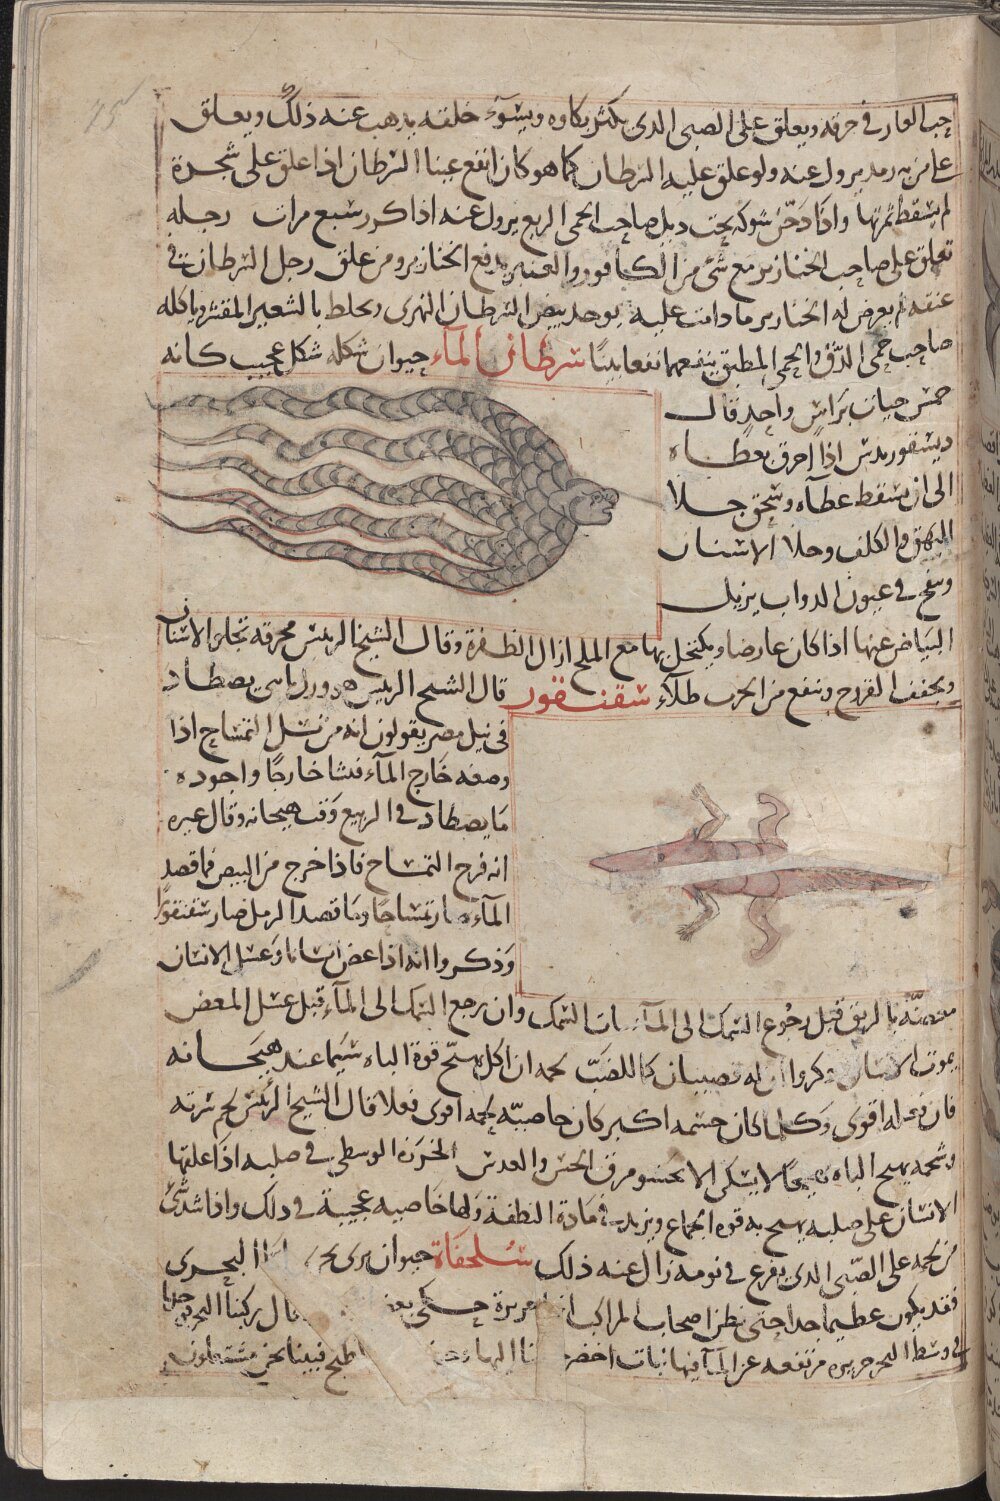 حب الغار في خرقة ويعلق على الصبي الذي يكثر بكاوه ويسوء خلقه يذهب عنه ذلك ويعلق
على من به رمد يزول عنه ولو علق عليه السرطان كما هو كان انفع عينا السرطان اذا علق على شجرة
لم يسقط ثمرتها واذا دخن شوكه تحت ذيل صاحب الحمى الربع يزول عنه اذا كرر سبع مرات رجله
تعلق على صاحب الخنازير مع شئ من الكافور والعنبر يدفع الخنازير ومن علق رجل السرطان في
عنقه لم يعرض له الخنازير ما دامت عليه يوخذ بيض السرطان النهرى ويخلط بالشعير المقشر وياكله
صاحب حمى الدق والحمى المطبق ينفعهما نفعا بينا سرطان المآء حيوان شكله شكل عجيب كانه
خمس حيات براس واحد قال
ديسقوريدس اذا احرق بعطاه
الى ان يسقط عطآه وسحق جلا
البهق والكلف وجلا الاسنان
وينفخ في عيون الدواب يزيل
البياض عنها اذا كان عارضا ويكتحل بها مع الملح ازال الظفرة وقال الشيخ الرييس محرقه تجلى الاسنان
ويجفف القروح وينفع من الجرب طلآء سقنقور قال الشيخ الرييس هو ورل مائي يصطاد
في نيل مصر يقولون انه من نسل التمساح اذا
وضعه خارج المآء فنشا خارجا واجوده
ما يصطاد في الربيع وقت هيجانه وقال غيره
انه فرخ التمساح فاذا خرج من البيض فما قصد
المآء صار تمساحا وما قصد الرمل صار سقنقورا
وذكروا انه اذا عض انسانا وغسل الانسان
معضه بالريق قبل رجوع السمك الى المآء مات السمك وان رجع السمك الى المآء قبل غسل المعض
يموت الانسان وذكروا ان له قضيبان كما للضب لحمه ان اكل يهيج قوة الباه سيما عند هيجانه
فان فعله اقوى وكلما كان جسمه اكبر كان خاصيته لحمه اقوى فعلا قال الشيخ الرئيس لحم سرته
وشحمه يهيج الباه تهييجا لا يسكن الا بحسو مرق الخس والعدس الخرزة الوسطى في صلبه اذا علقها
الانسان على صلبه يهيج به قوة الجماع ويزيد في مادة النطفة ولها خاصيه عجيبة في ذلك واذا شد شئ
من لحمه على الصبي الذي يفزع في نومه زال عنه ذلك سلحفاة حيوان برى بحرى اما البحرى
فقد يكون عظيما جدا حتى يظن اصحاب المراكب انها جزيرة حكى بعض قال ركبنا البحر فوجدنا
في وسط البحر جزيرة مرتفعة عن المآء فيها نبات اخضر اليها نطبخ فبينا نحن مشتغلون